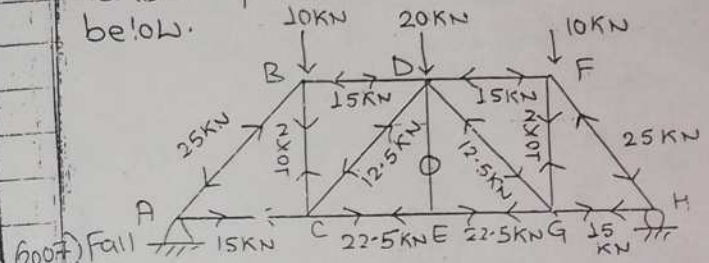 below.
10KN 20KN 10KN
B D F
15KN 15KN
25KN 10KN 12.5KN 12.5KN 10KN 25KN
A C E G H
15KN 22.5KN 22.5KN 15KN
2007) Fall